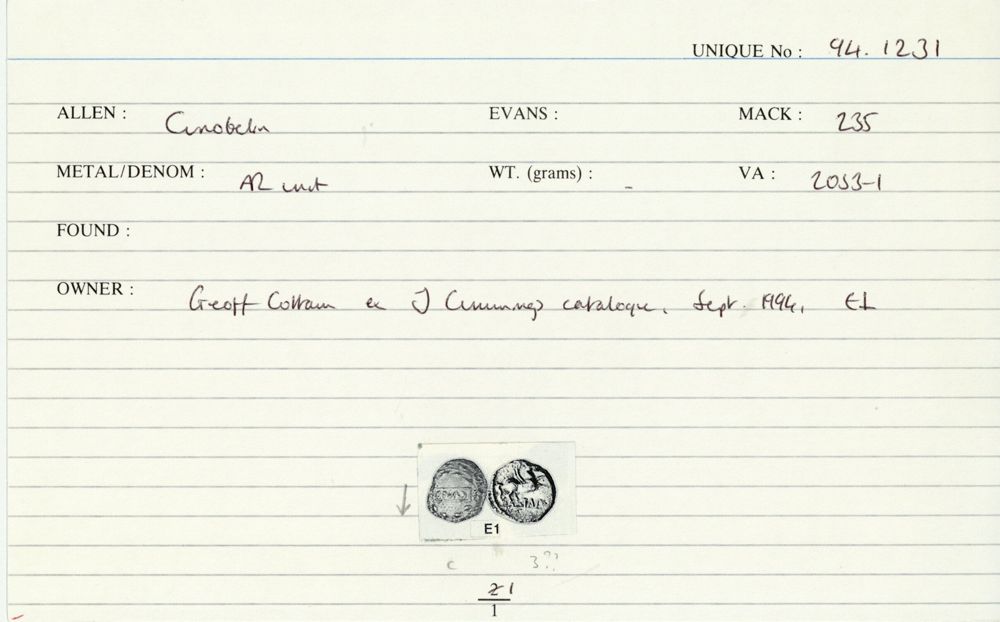 UNIQUE No : 94. 1231
ALLEN : Cunobelin EVANS : MACK : 235
METAL/DENOM : AR unit WT. (grams) : – VA : 2053-1
FOUND :
OWNER : Geoff Cottam ex J Cummings catalogue, Sept. 1994, E1
E1
c 3??
1
1